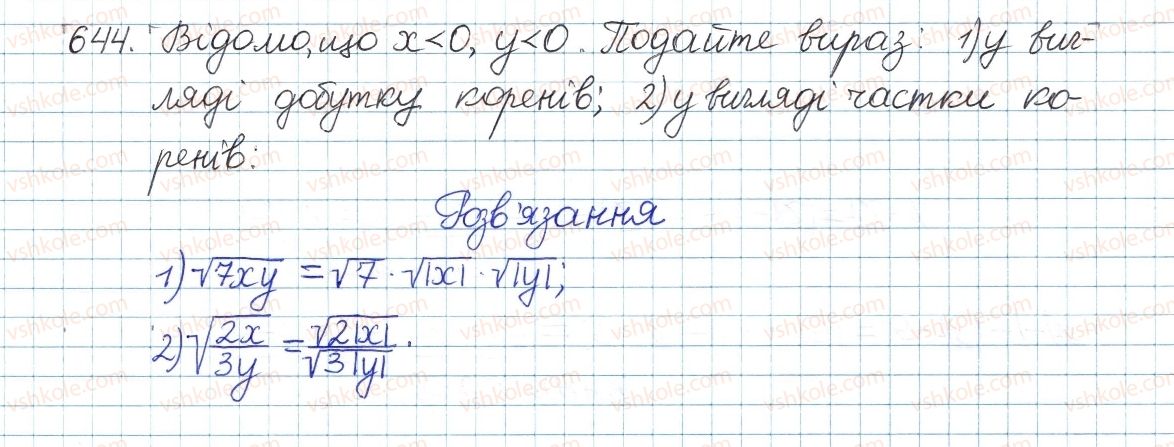 644. Відомо, що x<0, y<0. Подайте вираз: 1) у виг-
ляді добутку коренів; 2) у вигляді частки ко-
ренів:
Розв'язання
1) √7xy = √7 · √|x| · √|y|;
2) √(2x/3y) = √2|x|/√3|y|.